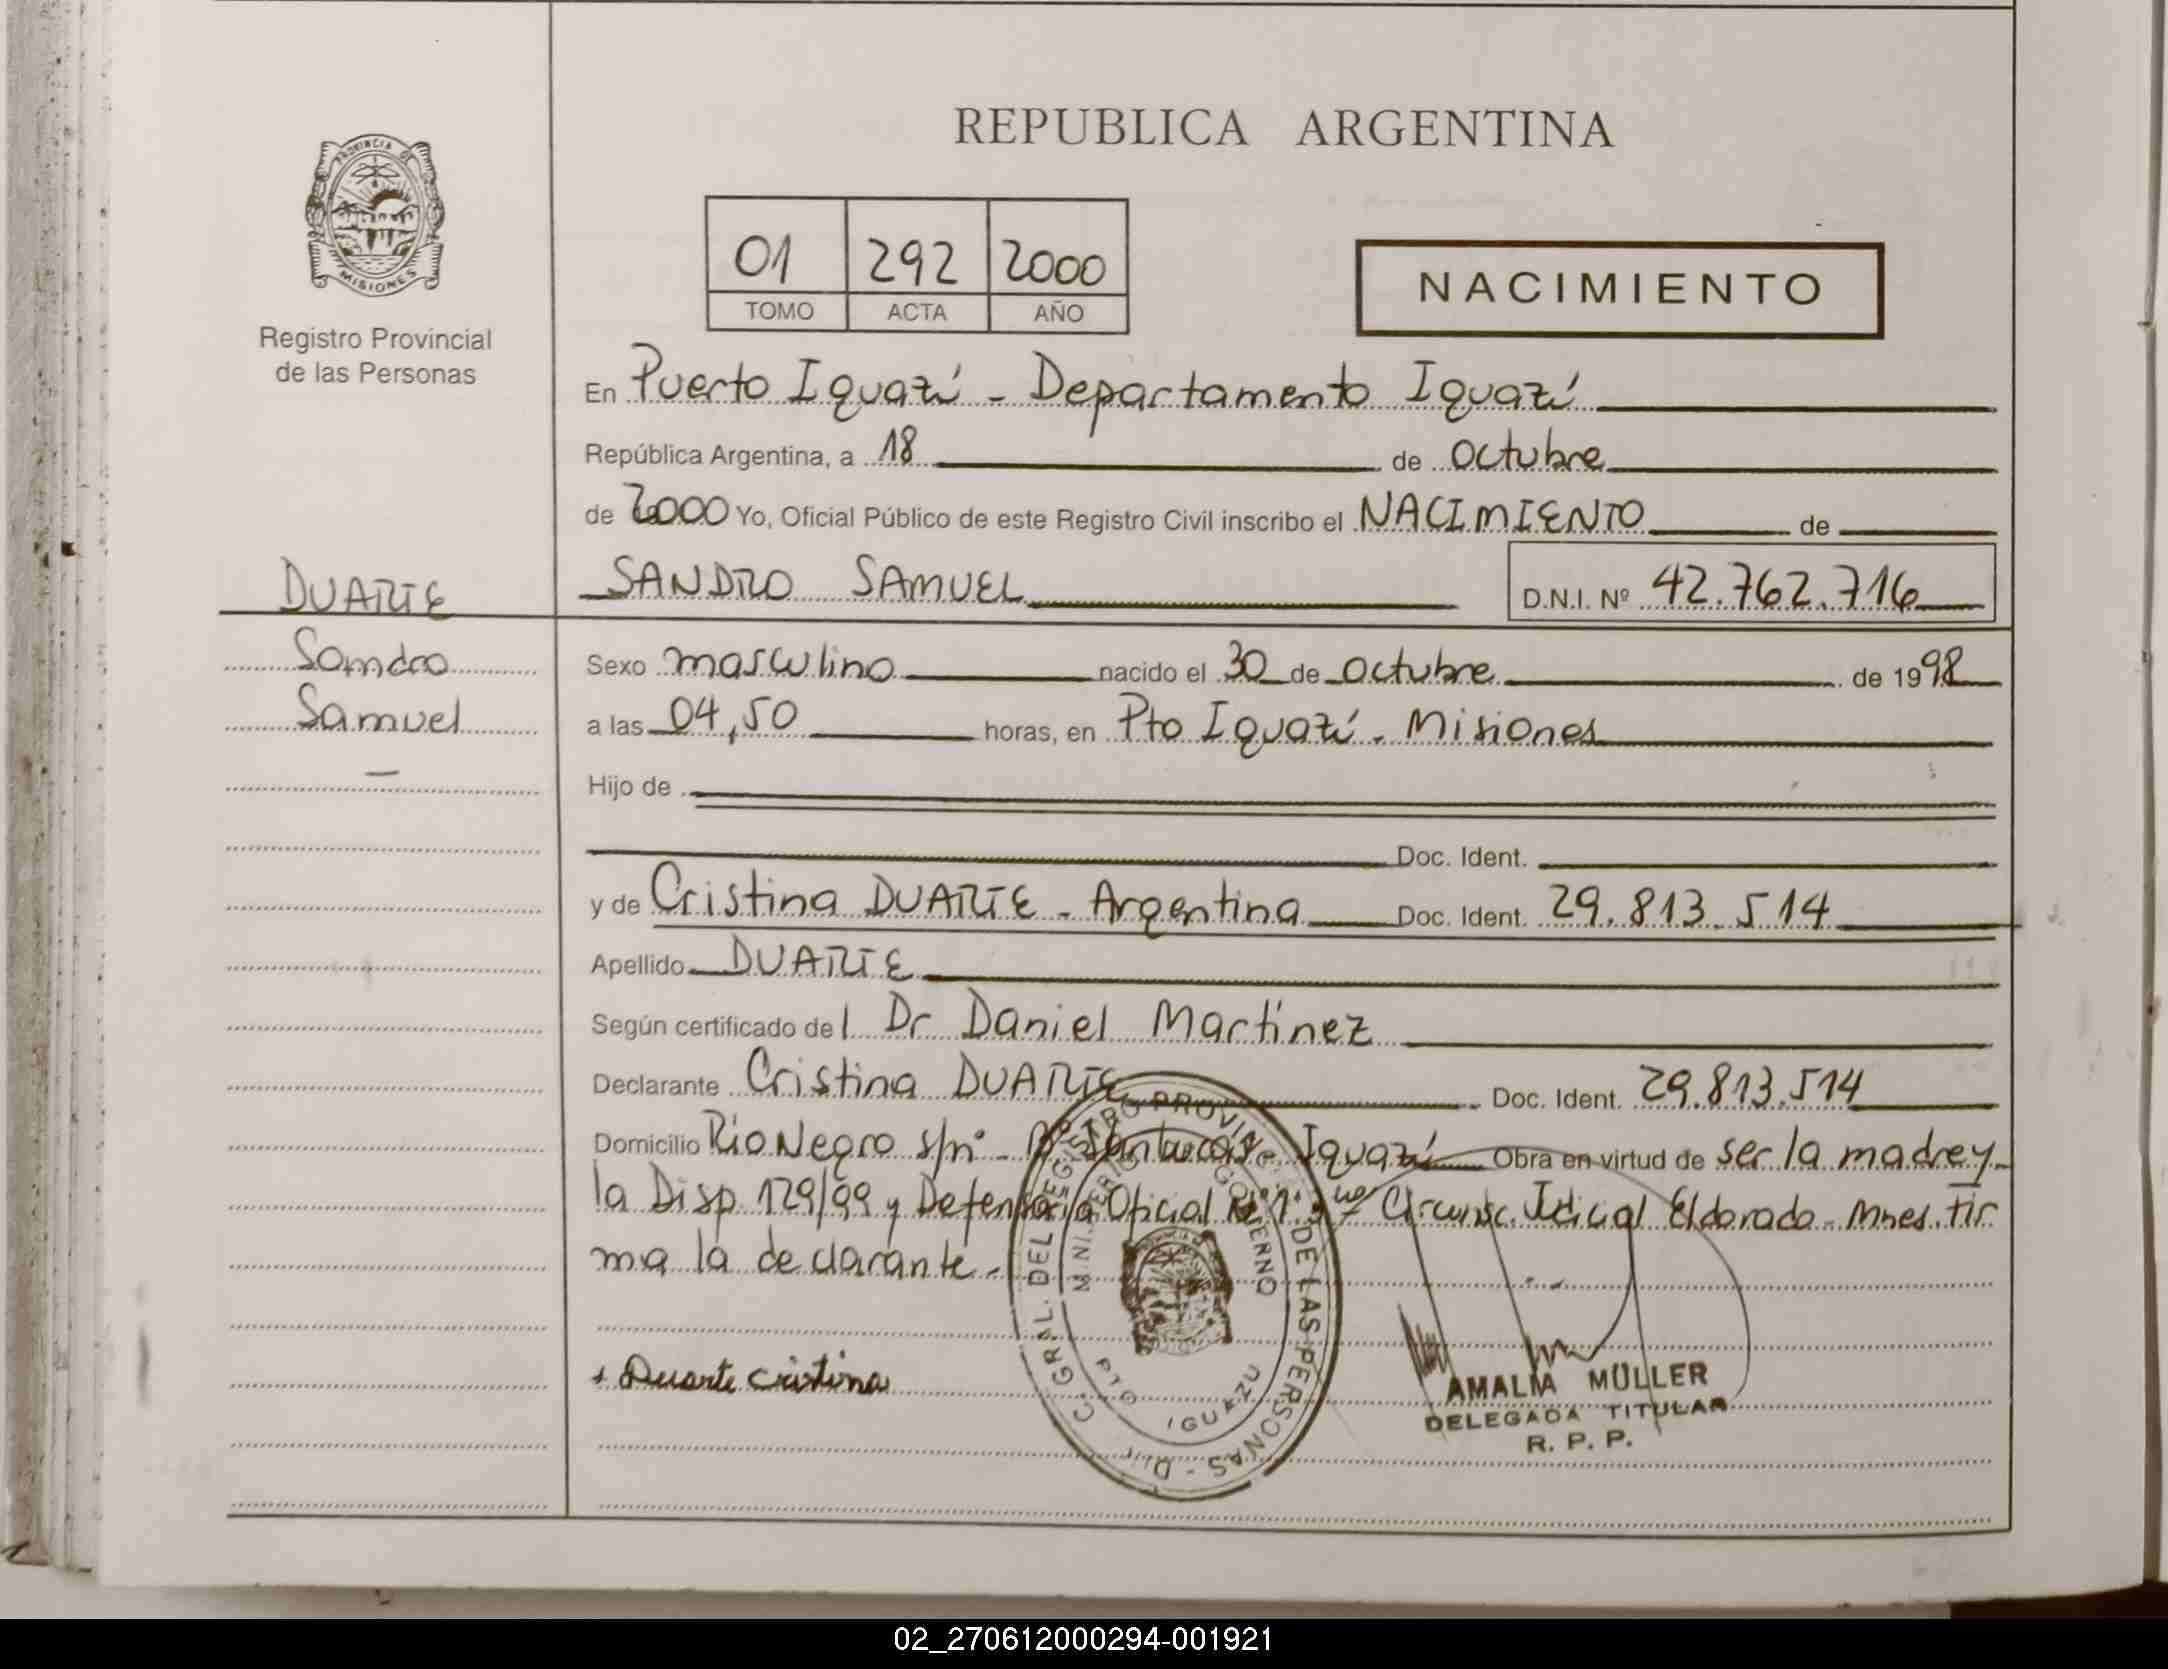 REPUBLICA ARGENTINA
PROVINCIA DE
MISIONES
Registro Provincial
de las Personas
01 292 2000
TOMO ACTA AÑO
NACIMIENTO
En Puerto Iguazú - Departamento Iguazú
República Argentina, a 18 de octubre
de 2000 Yo, Oficial Público de este Registro Civil inscribo el NACIMIENTO de
DUARTE
SANDRO SAMUEL D.N.I. Nº 42.762.716
Sandro
Samuel
Sexo masculino nacido el 30 de octubre de 1998
a las 04,50 horas, en Pto Iguazú - Misiones
Hijo de
Doc. Ident.
y de Cristina DUARTE - Argentina Doc. Ident. 29.813.514
Apellido DUARTE
Según certificado del Dr Daniel Martínez
Declarante Cristina DUARTE Doc. Ident. 29.813.514
Domicilio Rio Negro s/nº - Iguazú Obra en virtud de ser la madre y
la Disp. 129/99 y Defensoría Oficial Nº 1 Circunsc. Judicial Eldorado - Mnes. Fir
ma la declarante.
Duarte cristina
C. GRAL. DEL REGISTRO PROVINC. DE LAS PERSONAS
MINISTERIO GOBIERNO
PTO IGUAZU
AMALIA MULLER
DELEGADA TITULAR
R. P. P.
02_270612000294-001921